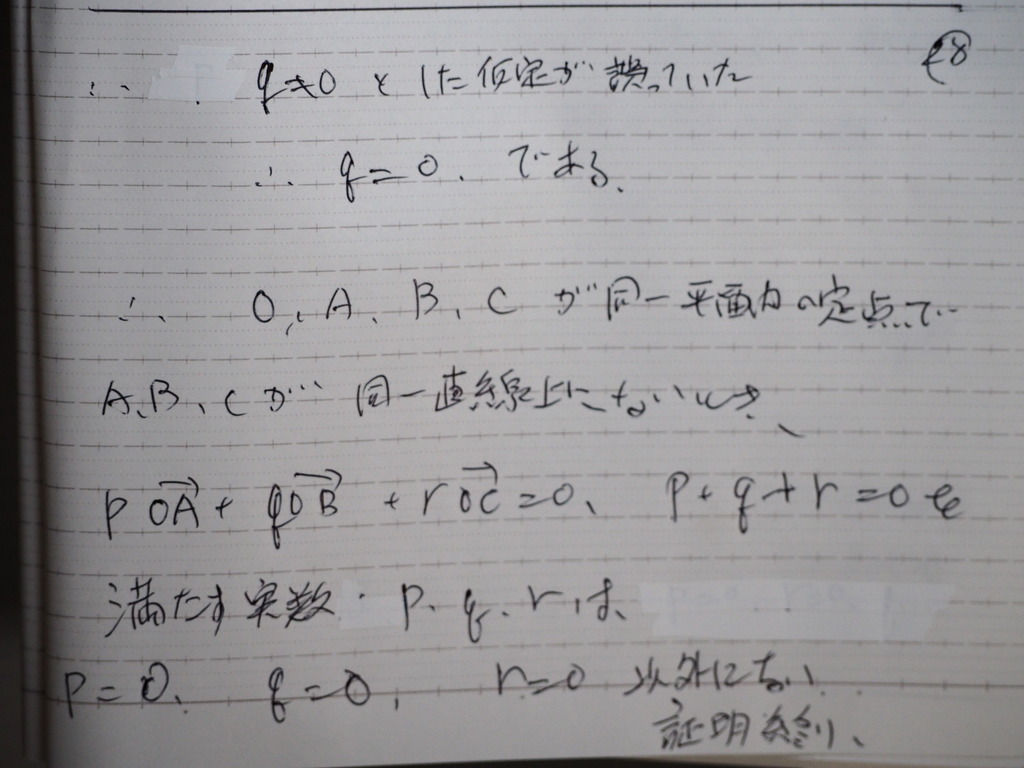 ⑧
∴ q≠0 とした仮定が誤っていた
∴ q=0. である.
∴ O, A、B、C が同一平面内の定点で
A、B、Cが 同一直線上にないとき、
p\overrightarrow{OA} + q\overrightarrow{OB} + r\overrightarrow{OC} = 0、 p+q+r=0を
満たす実数 p、q、r は、
p=0、 q=0, r=0 以外にない
証明終り、